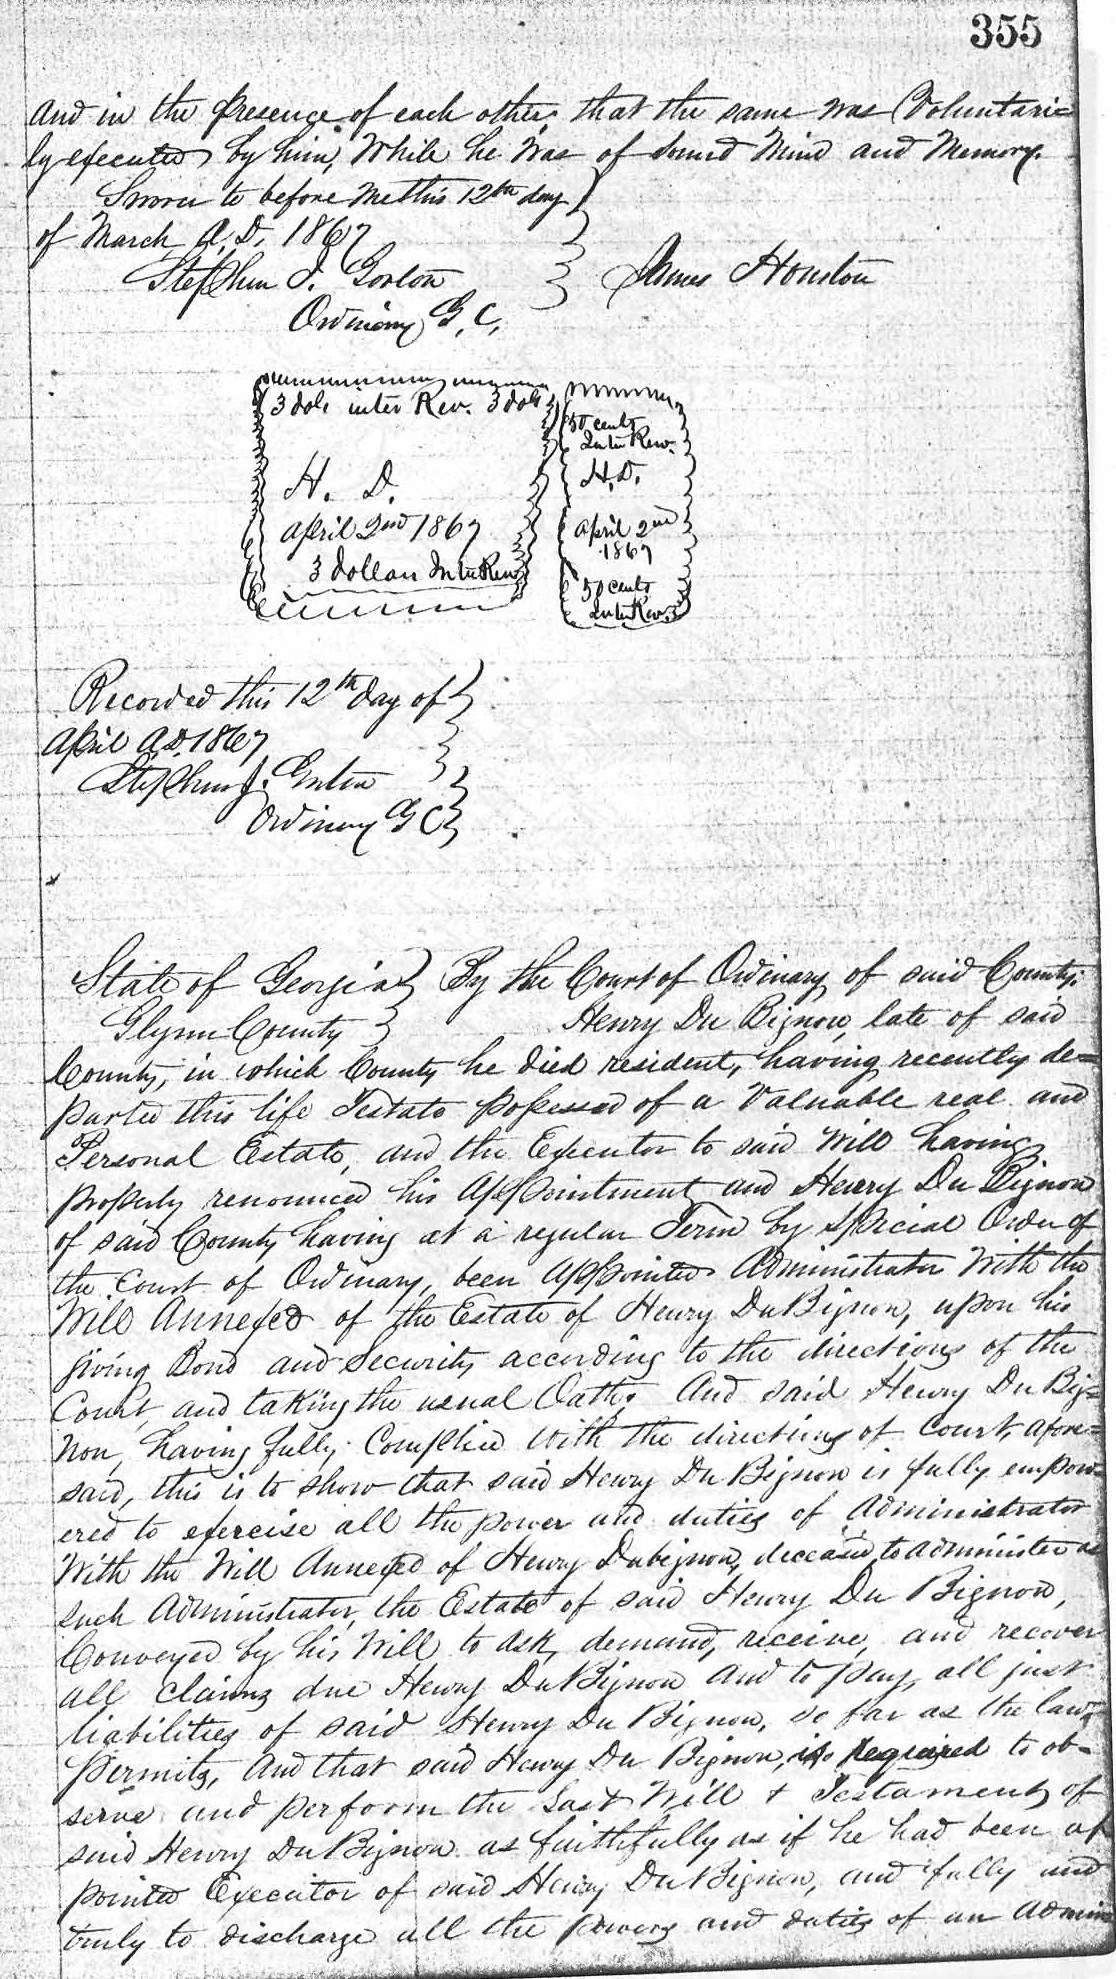 355
and in the presence of each other, that the same was Voluntari=
ly executed by him, While he was of sound Mind and Memory.
Sworn to before me this 12th day
of March, A.D. 1867
Stephen J. Gorton
James Houston
Ordinary G.C.
3 dols inter Rev. 3 dols
H. D.
April 2nd 1867
3 dollars Inter Rev
50 cents
Inter Rev.
H.D.
April 2nd
1867
50 cents
Inter Rev.
Recorded this 12th day of
April A.D. 1867
Stephen J. Gorton
Ordinary G C
State of Georgia By the Court of Ordinary of said County:
Glynn County Henry Du Bignon, late of said
County, in which County he died resident, having recently de=
parted this life Testate possessed of a Valuable real and
Personal Estate, and the Executor to said Will having
properly renounced his appointment and Henry Du Bignon
of said County having at a regular Term by special Order of
the Court of Ordinary, been appointed Administrator With the
Will Annexed of the Estate of Henry DuBignon, upon his
giving Bond and Security according to the directions of the
Court, and taking the usual Oath. And said Henry Du Big=
non, having fully complied with the directions of Court, afore=
said, this is to show that said Henry Du Bignon is fully empow=
ered to exercise all the power and duties of Administrator
With the Will Annexed of Henry Dubignon, deceased, to administer as
such Administrator, the Estate of said Henry Du Bignon,
Conveyed by his Will to ask, demand, receive, and recover
all claims due Henry DuBignon and to pay, all just
liabilities of said Henry Du Bignon, so far as the law
permits, And that said Henry Du Bignon, is required to ob=
serve and perform the Last Will & Testament of
said Henry DuBignon as faithfully as if he had been ap
pointed Executor of said Henry DuBignon, and fully and
truly to discharge all the powers and duties of an Admin